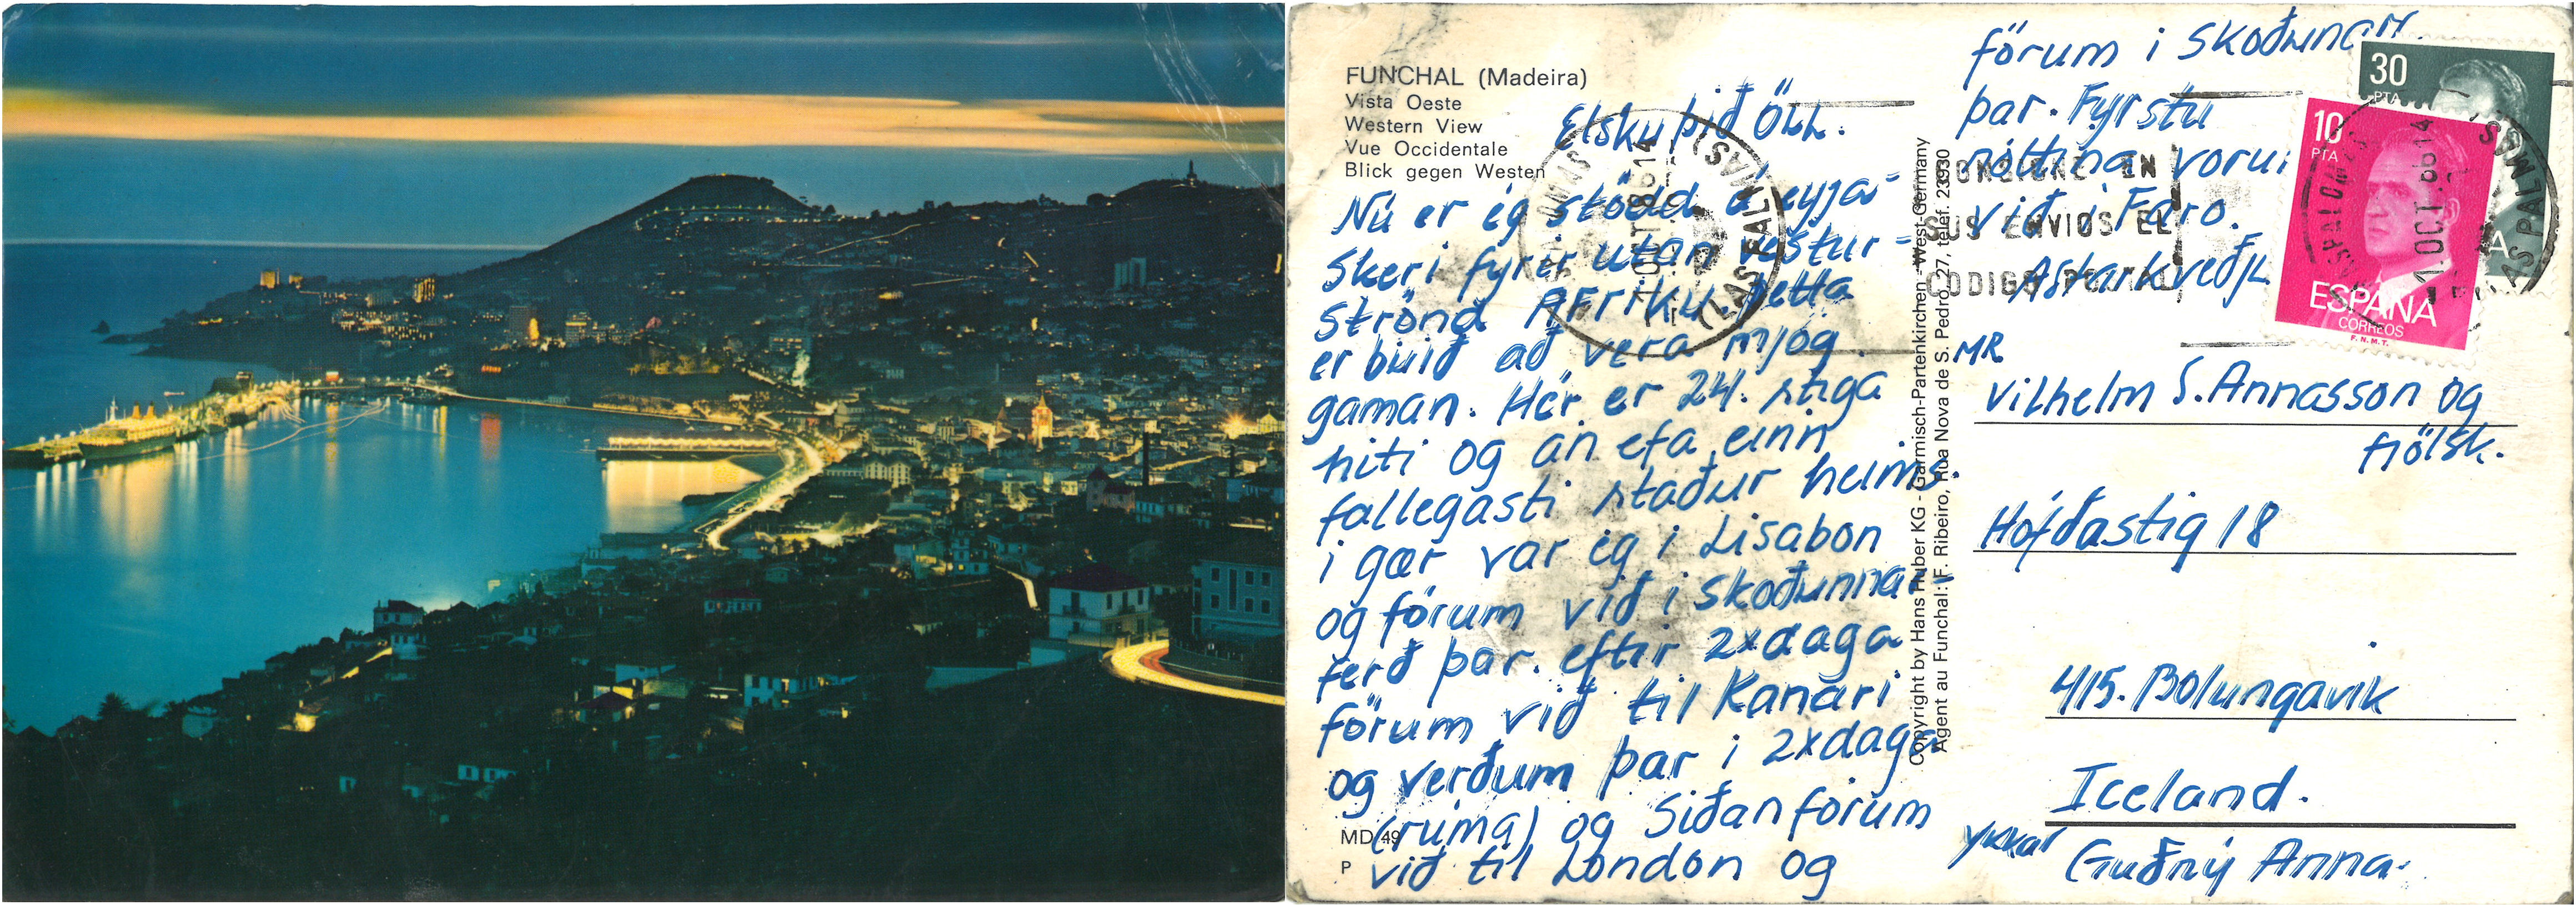 FUNCHAL (Madeira)
Vista Oeste
Western View
Vue Occidentale
Blick gegen Westen
Elsku þið Öll.
Nú er ég stödd á eyja-
skeri fyrir utan vestur-
strönd AFríku þetta
er búið að vera mjög
gaman. Hér er 24. stiga
hiti og án efa einn
fallegasti staður heims.
í gær var ég í Lisabon
og fórum við í skoðunnar-
ferð þar. eftir 2xdaga
förum við til Kanarí
og verðum þar í 2xdaga
(rúma) og Síðan förum
við til London og
MD 49
P
Copyright by Hans Huber KG - Garmisch-Partenkirchen - West-Germany
Agent au Funchal: F. Ribeiro, Rua Nova de S. Pedro, 27, telef. 23930
förum í skoðunar
þar. Fyrstu
nóttina vorum
við í Faro.
Ástarkveðju
MR
Vilhelm S. Annasson og
fjölsk.
Höfðastíg 18
415. Bolungavík
Iceland.
ykkar Guðný Anna.
30
PTA
10
PTA
ESPAÑA
CORREOS
F.N.M.T.
CONSIGNE EN
SUS ENVIOS EL
CODIGO POSTAL
1.OCT.86 14
LAS PALMAS